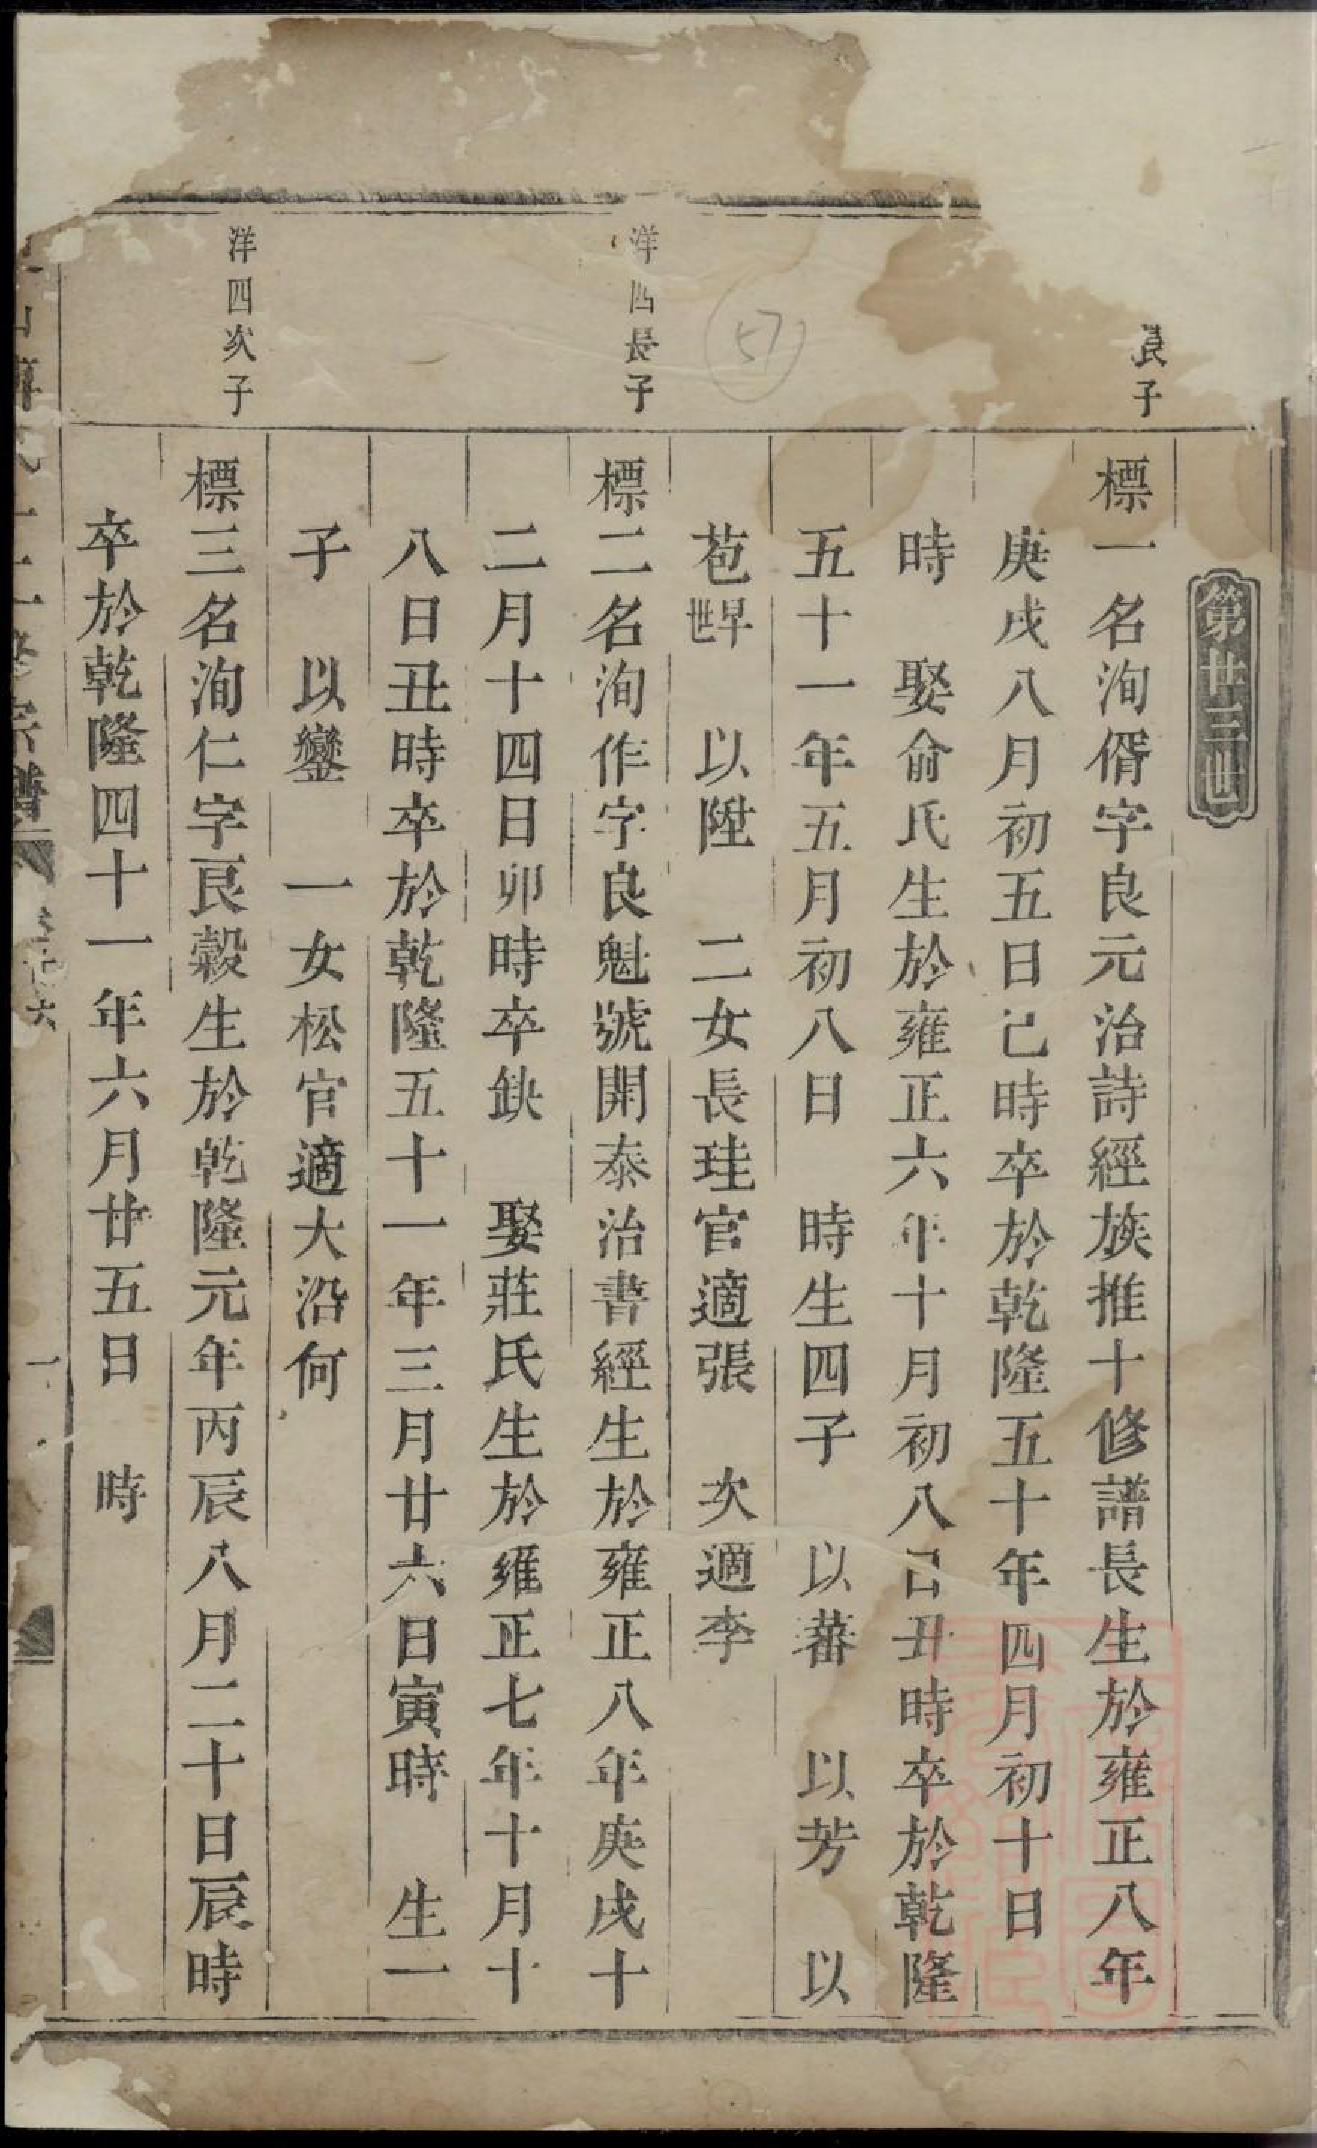 第廿三世
長子
標一名洵偦字良元治詩經族推十修譜長生於雍正八年
庚戌八月初五日己時卒於乾隆五十年四月初十日
時 娶俞氏生於雍正六年十月初八日丑時卒於乾隆
五十一年五月初八日 時生四子 以蕃 以芳 以
苞早世 以陞 二女長珪官適張 次適李
洋四長子
標二名洵作字良魁號開泰治書經生於雍正八年庚戌十
二月十四日卯時卒缺 娶莊氏生於雍正七年十月十
八日丑時卒於乾隆五十一年三月廿六日寅時 生一
子 以鑾 一女松官適大沿何
洋四次子
標三名洵仁字艮榖生於乾隆元年丙辰八月二十日辰時
卒於乾隆四十一年六月廿五日 時
57
宗譜
六
一